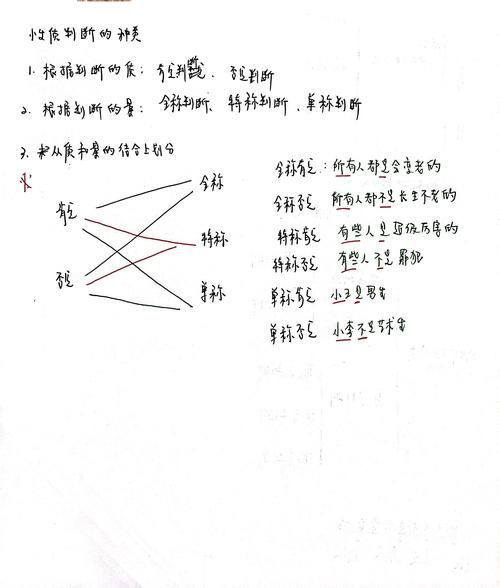 性质判断的种类
1. 根据判断的质：肯定判断、否定判断
2. 根据判断的量：全称判断、特称判断、单称判断
3. 从质和量的结合上划分
肯定
否定
全称
特称
单称
全称肯定：所有人都是会变老的
全称否定 所有人都不是长生不老的
特称肯定 有些人是超级厉害的
特称否定 有些人不是罪犯
单称肯定 小王是男生
单称否定 小李不是艺术生